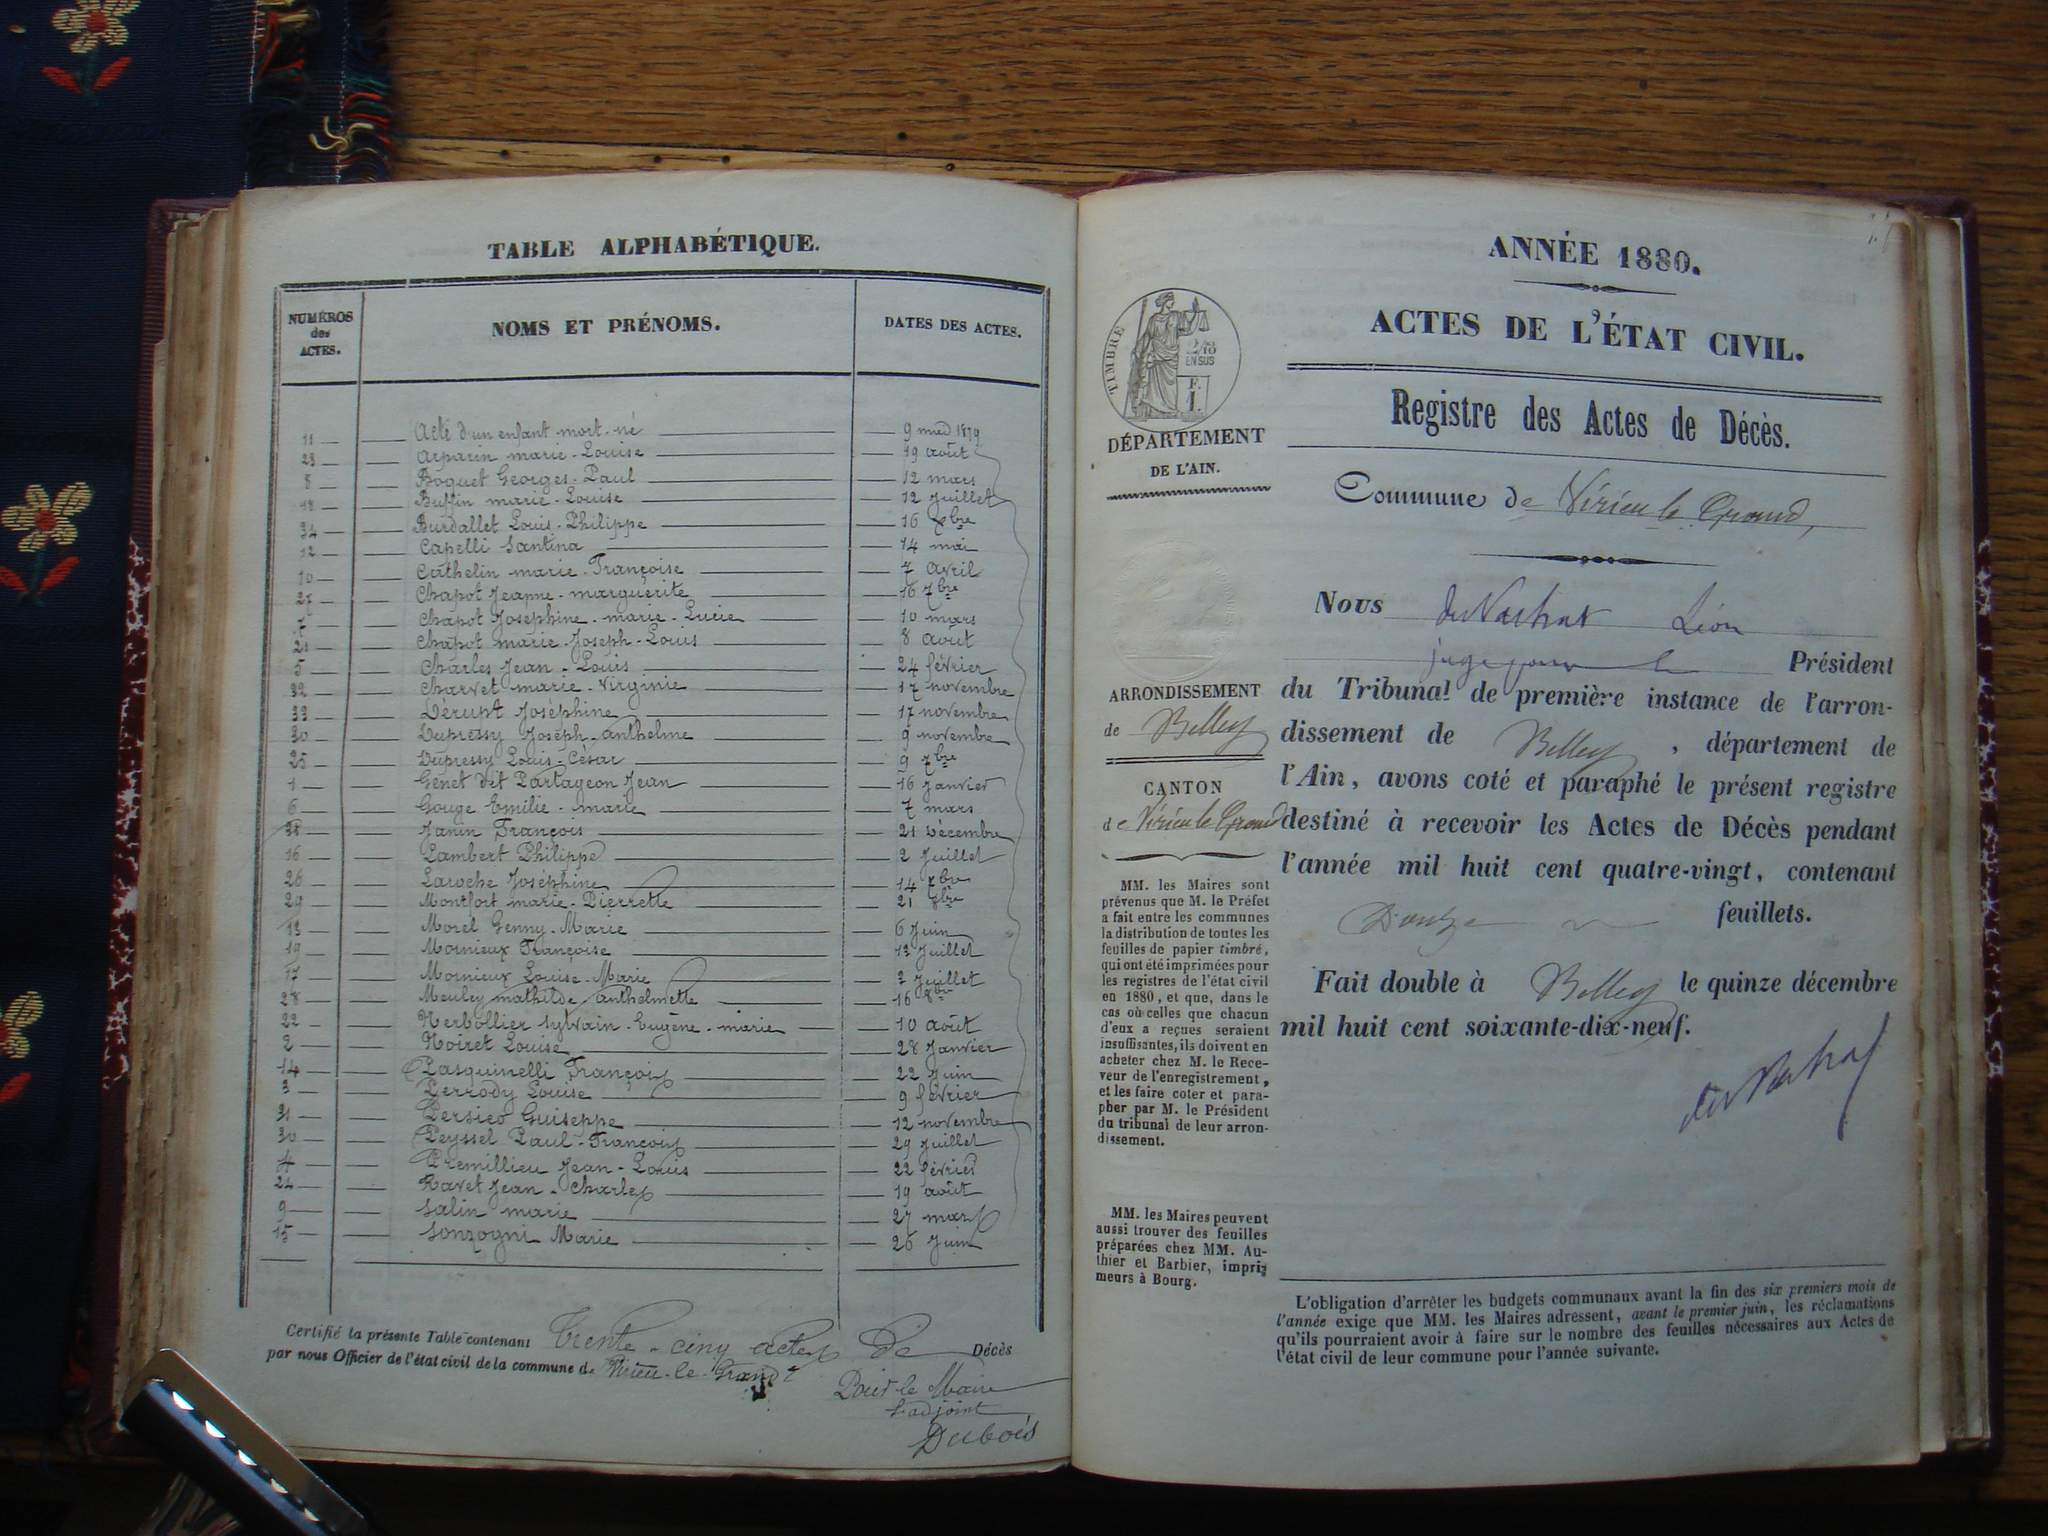 TABLE ALPHABÉTIQUE.
NUMÉROS
des
ACTES.
NOMS ET PRÉNOMS.
DATES DES ACTES.
11 Acte d'un enfant mort-né 9 1879
23 Arparin marie-Louise 19 août
8 Boquet Georges-Paul 12 mars
18 Buffin marie-Louise 12 Juillet
34 Burdallet Louis-Philippe 16 xbre
12 Capelli Santina 14 mai
10 Cathelin marie-Françoise 7 avril
27 Chapot Jeanne-marguerite 16 7bre
7 Chapot Joséphine-marie-Lucie 10 mars
21 Chapot marie-Joseph-Louis 8 août
5 Charles Jean-Louis 24 février
32 Charvet marie-Virginie 17 novembre
33 Dérupt Joséphine 17 novembre
30 Dupressy Joseph-anthelme 9 novembre
25 Dupressy Louis-César 9 7bre
1 Genet dit Partageon Jean 16 Janvier
6 Gouge Emilie-marie 7 mars
Janin François 21 Décembre
16 Lambert Philippe 2 Juillet
26 Laroche Joséphine 14 7bre
29 Montfort marie-Pierrette 21 8bre
13 Morel Genny-Marie 6 Juin
19 Moinieux Françoise 13 Juillet
17 Moinieux Louise-Marie 7 Juillet
28 Meuley mathilde-anthelmette 16 8bre
22 Nerbollier Sylvain-Eugène-marie 10 août
2 Noiret Louise 28 Janvier
14 Pasquinelli François 22 Juin
3 Perrody Louise 9 février
31 Persico Guiseppe 12 novembre
Peyssel Paul-François 29 Juillet
4 Premillieu Jean-Louis 22 février
24 Ravet Jean-Charles 19 août
9 Salin marie 27 mars
15 Sonzogni Marie 26 Juin
Certifié la présente Table contenant Trente-cinq actes De Décès
par nous Officier de l'état civil de la commune de Virieu-le-Grand
Pour le Maire
l'adjoint
Dubois
ANNÉE 1880.
ACTES DE L'ÉTAT CIVIL.
Registre des Actes de Décès.
Commune de Virieu le Grand,
TIMBRE
2/10
EN SUS
F.
1.
DÉPARTEMENT
DE L'AIN.
ARRONDISSEMENT
de Belley
CANTON
de Virieu le Grand
MM. les Maires sont
prévenus que M. le Préfet
a fait entre les communes
la distribution de toutes les
feuilles de papier timbré,
qui ont été imprimées pour
les registres de l'état civil
en 1880, et que, dans le
cas où celles que chacun
d'eux a reçues seraient
insuffisantes, ils doivent en
acheter chez M. le Rece-
veur de l'enregistrement,
et les faire coter et para-
pher par M. le Président
du tribunal de leur arron-
dissement.
MM. les Maires peuvent
aussi trouver des feuilles
préparées chez MM. Au-
thier et Barbier, impri-
meurs à Bourg.
Nous Léon
juge pour le Président
du Tribunal de première instance de l'arron-
dissement de Belley, département de
l'Ain, avons coté et paraphé le présent registre
destiné à recevoir les Actes de Décès pendant
l'année mil huit cent quatre-vingt, contenant
Douze feuillets.
Fait double à Belley le quinze décembre
mil huit cent soixante-dix-neuf.
L'obligation d'arrêter les budgets communaux avant la fin des six premiers mois de
l'année exige que MM. les Maires adressent, avant le premier juin, les réclamations
qu'ils pourraient avoir à faire sur le nombre des feuilles nécessaires aux Actes de
l'état civil de leur commune pour l'année suivante.